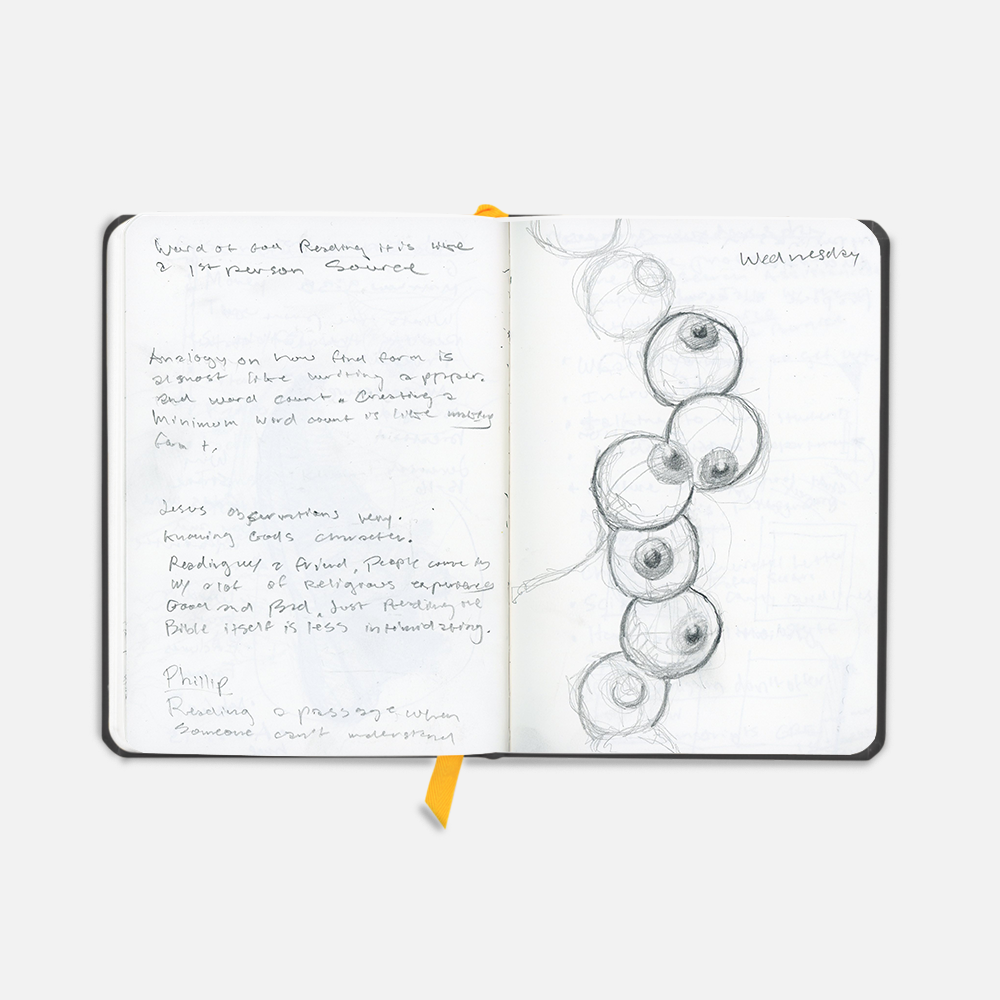 Word of God Reading it is like
a 1st person Source
Analogy on how find form is
almost like writing a paper.
and word count. Creating a
Minimum word count is like making
form t,
Jesus observations very.
Knowing Gods character.
Reading w/ a friend, People come
w/ a lot of Religious experiences
Good and Bad, Just Reading the
Bible itself is less intimidating.
Phillip
Reading a passage when
Someone can't understand
Wednesday